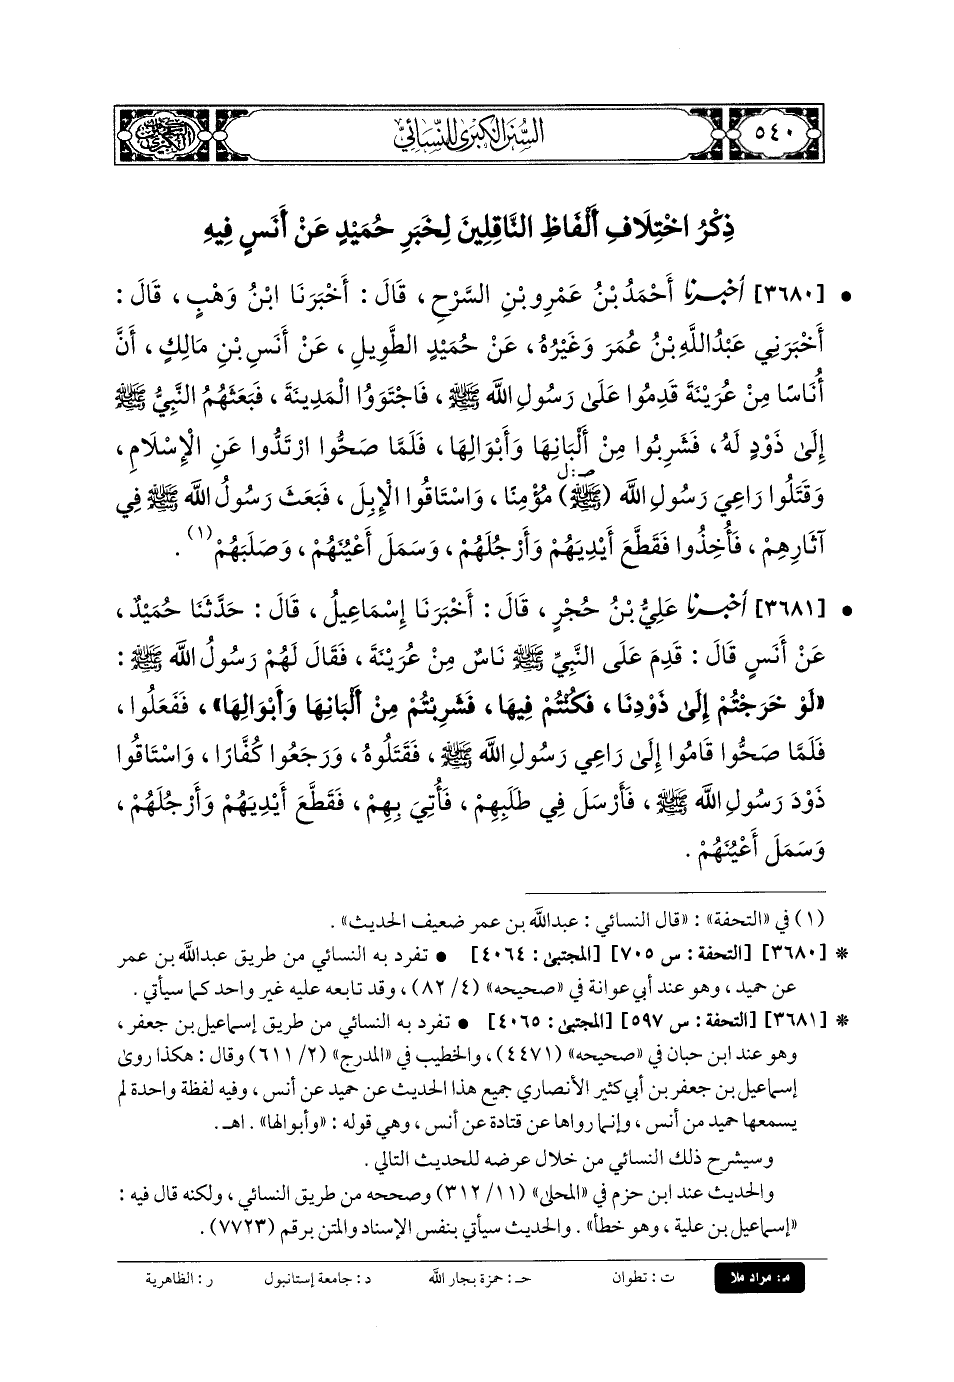 ٥٤٠
السنن الكبرى للنسائي
ذِكْرُ اخْتِلَافِ أَلْفَاظِ النَّاقِلِينَ لِخَبَرِ حُمَيْدٍ عَنْ أَنَسٍ فِيهِ
• [٣٦٨٠] أخبرنا أَحْمَدُ بْنُ عَمْرِو بْنِ السَّرْحِ ، قَالَ : أَخْبَرَنَا ابْنُ وَهْبٍ ، قَالَ :
أَخْبَرَنِي عَبْدُاللَّهِ بْنُ عُمَرَ وَغَيْرُهُ ، عَنْ حُمَيْدٍ الطَّوِيلِ ، عَنْ أَنَسِ بْنِ مَالِكٍ ، أَنَّ
أُنَاسًا مِنْ عُرَيْنَةَ قَدِمُوا عَلَىٰ رَسُولِ اللَّه ﷺ ، فَاجْتَوَوُا الْمَدِينَةَ ، فَبَعَثَهُمُ النَّبِيُّ ﷺ
إِلَىٰ ذَوْدٍ لَهُ ، فَشَرِبُوا مِنْ أَلْبَانِهَا وَأَبْوَالِهَا ، فَلَمَّا صَحُّوا ارْتَدُّوا عَنِ الْإِسْلَامِ ،
صـ : ل
وَقَتَلُوا رَاعِيَ رَسُولِ اللَّه (ﷺ) مُؤْمِنًا ، وَاسْتَاقُوا الْإِبِلَ ، فَبَعَثَ رَسُولُ اللَّه ﷺ فِي
آثَارِهِمْ ، فَأُخِذُوا فَقَطَّعَ أَيْدِيَهُمْ وَأَرْجُلَهُمْ ، وَسَمَلَ أَعْيُنَهُمْ ، وَصَلَبَهُمْ (١) .
• [٣٦٨١] أخبرنا عَلِيُّ بْنُ حُجْرٍ ، قَالَ : أَخْبَرَنَا إِسْمَاعِيلُ ، قَالَ : حَدَّثَنَا حُمَيْدٌ ،
عَنْ أَنَسٍ قَالَ : قَدِمَ عَلَى النَّبِيِّ ﷺ نَاسٌ مِنْ عُرَيْنَةَ ، فَقَالَ لَهُمْ رَسُولُ اللَّه ﷺ :
«لَوْ خَرَجْتُمْ إِلَىٰ ذَوْدِنَا ، فَكُنْتُمْ فِيهَا ، فَشَرِبْتُمْ مِنْ أَلْبَانِهَا وَأَبْوَالِهَا» ، فَفَعَلُوا ،
فَلَمَّا صَحُّوا قَامُوا إِلَىٰ رَاعِي رَسُولِ اللَّه ﷺ ، فَقَتَلُوهُ ، وَرَجَعُوا كُفَّارًا ، وَاسْتَاقُوا
ذَوْدَ رَسُولِ اللَّه ﷺ ، فَأَرْسَلَ فِي طَلَبِهِمْ ، فَأُتِيَ بِهِمْ ، فَقَطَّعَ أَيْدِيَهُمْ وَأَرْجُلَهُمْ ،
وَسَمَلَ أَعْيُنَهُمْ .
(١) في «التحفة» : «قال النسائي : عبدالله بن عمر ضعيف الحديث» .
* [٣٦٨٠] [التحفة : س ٧٠٥] [المجتبىٰ : ٤٠٦٤] • تفرد به النسائي من طريق عبدالله بن عمر
عن حميد ، وهو عند أبي عوانة في «صحيحه» (٤/ ٨٢) ، وقد تابعه عليه غير واحد كما سيأتي .
* [٣٦٨١] [التحفة : س ٥٩٧] [المجتبىٰ : ٤٠٦٥] • تفرد به النسائي من طريق إسماعيل بن جعفر ،
وهو عند ابن حبان في «صحيحه» (٤٤٧١) ، والخطيب في «المدرج» (٢/ ٦١١) وقال : هكذا روىٰ
إسماعيل بن جعفر بن أبي كثير الأنصاري جميع هذا الحديث عن حميد عن أنس ، وفيه لفظة واحدة لم
يسمعها حميد من أنس ، وإنما رواها عن قتادة عن أنس ، وهي قوله : «وأبوالها» . اهـ .
وسيشرح ذلك النسائي من خلال عرضه للحديث التالي .
والحديث عند ابن حزم في «المحلىٰ» (١١/ ٣١٢) وصححه من طريق النسائي ، ولكنه قال فيه :
«إسماعيل بن علية ، وهو خطأ» . والحديث سيأتي بنفس الإسناد والمتن برقم (٧٧٢٣) .
م: مراد ملا ت : تطوان حـ : حمزة بجار الله د : جامعة إستانبول ر : الظاهرية